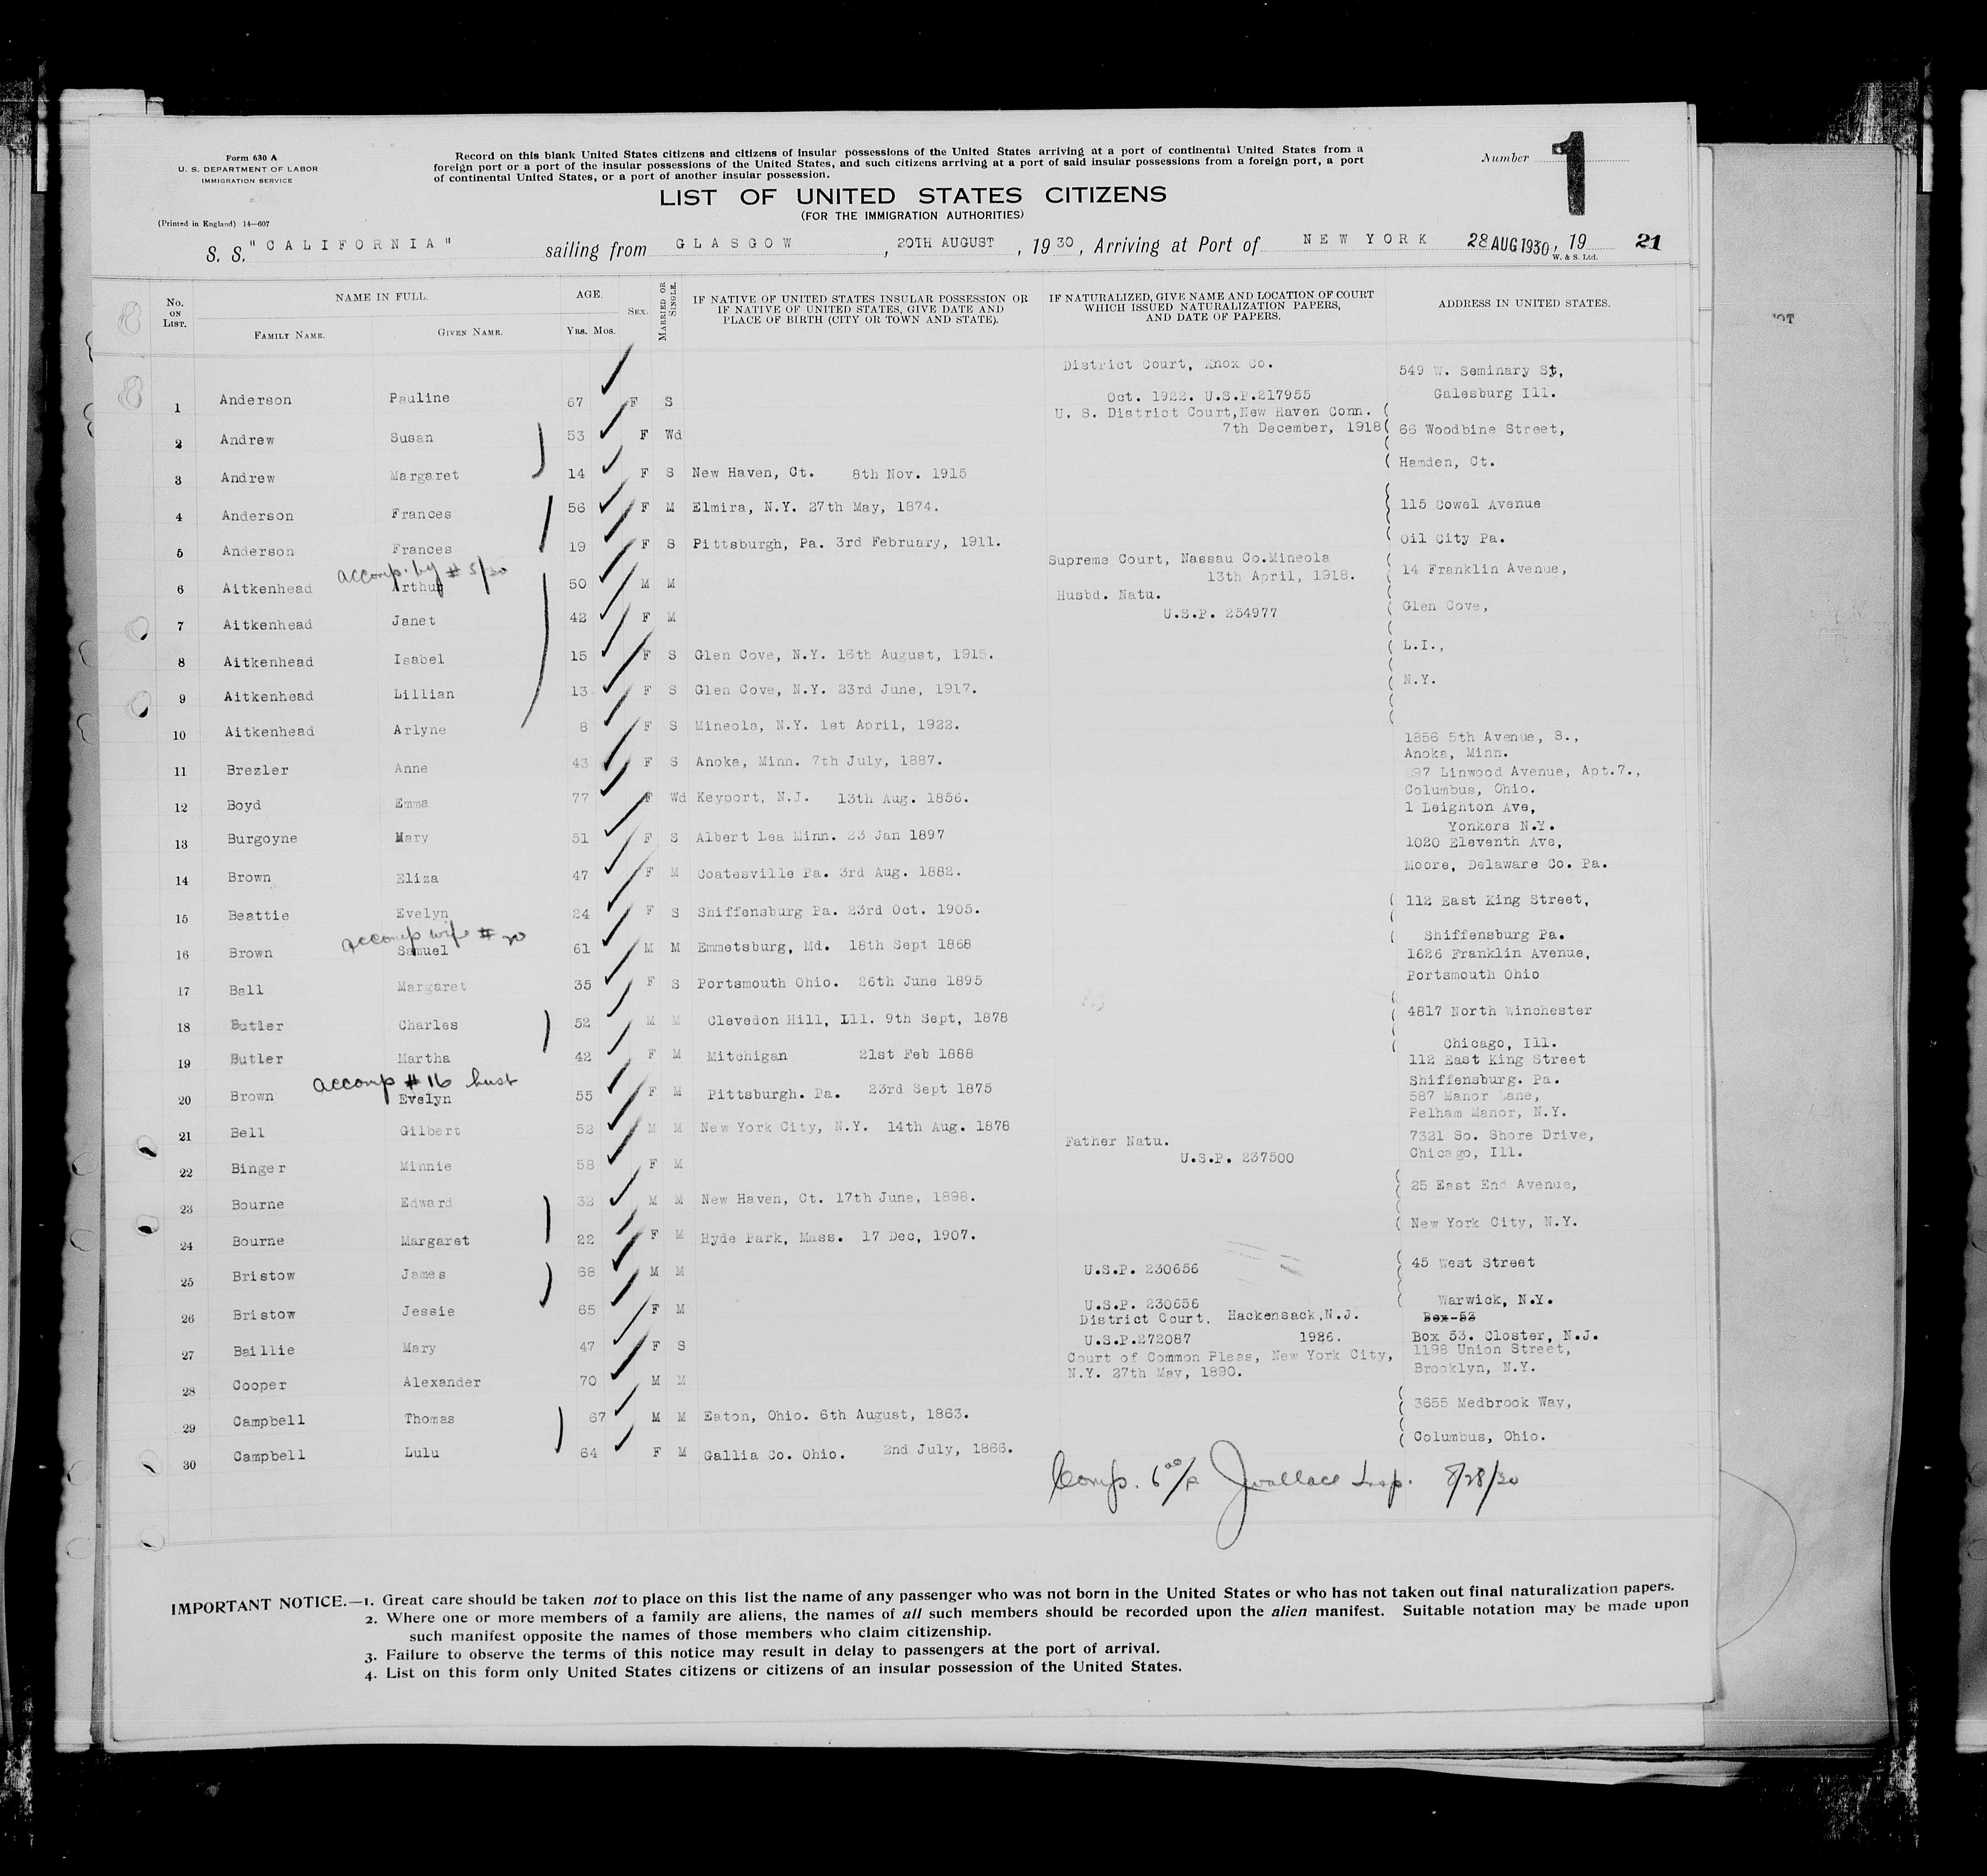 Form 630 A
U. S. DEPARTMENT OF LABOR
IMMIGRATION SERVICE
(Printed in England) 14—607
Record on this blank United States citizens and citizens of insular possessions of the United States arriving at a port of continental United States from a
foreign port or a port of the insular possessions of the United States, and such citizens arriving at a port of said insular possessions from a foreign port, a port
of continental United States, or a port of another insular possession.
Number 1
LIST OF UNITED STATES CITIZENS
(FOR THE IMMIGRATION AUTHORITIES)
S. S. "CALIFORNIA" sailing from GLASGOW, 20TH AUGUST, 1930, Arriving at Port of NEW YORK 28 AUG 1930, 19 21
W. & S. Ltd.
No. ON LIST. NAME IN FULL. AGE. SEX. MARRIED OR SINGLE. IF NATIVE OF UNITED STATES INSULAR POSSESSION OR IF NATIVE OF UNITED STATES, GIVE DATE AND PLACE OF BIRTH (CITY OR TOWN AND STATE). IF NATURALIZED, GIVE NAME AND LOCATION OF COURT WHICH ISSUED NATURALIZATION PAPERS, AND DATE OF PAPERS. ADDRESS IN UNITED STATES.
FAMILY NAME. GIVEN NAME. YRS. MOS.
District Court, Knox Co. 549 W. Seminary St,
1 Anderson Pauline 67 F S Oct. 1922. U.S.P.217955 Galesburg Ill.
U. S. District Court, New Haven Conn.
2 Andrew Susan 53 F Wd 7th December, 1918 66 Woodbine Street,
3 Andrew Margaret 14 F S New Haven, Ct. 8th Nov. 1915 Hamden, Ct.
4 Anderson Frances 56 F M Elmira, N.Y. 27th May, 1874. 115 Cowel Avenue
5 Anderson Frances 19 F S Pittsburgh, Pa. 3rd February, 1911. Oil City Pa.
accomp. by # 5/30 Supreme Court, Nassau Co.Mineola
6 Aitkenhead Arthur 50 M M 13th April, 1918. 14 Franklin Avenue,
Husbd. Natu.
7 Aitkenhead Janet 42 F M U.S.P. 254977 Glen Cove,
8 Aitkenhead Isabel 15 F S Glen Cove, N.Y. 16th August, 1915. L.I.,
9 Aitkenhead Lillian 13 F S Glen Cove, N.Y. 23rd June, 1917. N.Y.
10 Aitkenhead Arlyne 8 F S Mineola, N.Y. 1st April, 1922.
1856 5th Avenue, S.,
11 Brezler Anne 43 F S Anoka, Minn. 7th July, 1887. Anoka, Minn.
97 Linwood Avenue, Apt.7.,
12 Boyd Emma 77 F Wd Keyport, N.J. 13th Aug. 1856. Columbus, Ohio.
1 Leighton Ave,
13 Burgoyne Mary 51 F S Albert Lea Minn. 23 Jan 1897 Yonkers N.Y.
1020 Eleventh Ave,
14 Brown Eliza 47 F M Coatesville Pa. 3rd Aug. 1882. Moore, Delaware Co. Pa.
15 Beattie Evelyn 24 F S Shiffensburg Pa. 23rd Oct. 1905. 112 East King Street,
accomp wife # 20 Shiffensburg Pa.
16 Brown Samuel 61 M M Emmetsburg, Md. 18th Sept 1868 1626 Franklin Avenue,
17 Ball Margaret 35 F S Portsmouth Ohio. 26th June 1895 Portsmouth Ohio
18 Butler Charles 52 M M Clevedon Hill, Ill. 9th Sept, 1878 4817 North Winchester
Chicago, Ill.
19 Butler Martha 42 F M Mitchigan 21st Feb 1888 112 East King Street
accomp # 16 husb Shiffensburg. Pa.
20 Brown Evelyn 55 F M Pittsburgh. Pa. 23rd Sept 1875 587 Manor Lane,
Pelham Manor, N.Y.
21 Bell Gilbert 52 M M New York City, N.Y. 14th Aug. 1878
Father Natu. 7321 So. Shore Drive,
22 Binger Minnie 58 F M U.S.P. 237500 Chicago, Ill.
23 Bourne Edward 32 M M New Haven, Ct. 17th June, 1898. 25 East End Avenue,
24 Bourne Margaret 22 F M Hyde Park, Mass. 17 Dec, 1907. New York City, N.Y.
25 Bristow James 68 M M U.S.P. 230656 45 West Street
26 Bristow Jessie 65 F M U.S.P. 230656 Warwick, N.Y.
District Court, Hackensack,N.J. Box-53
27 Baillie Mary 47 F S U.S.P.272087 1926. Box 53. Closter, N.J.
Court of Common Pleas, New York City, 1198 Union Street,
28 Cooper Alexander 70 M M N.Y. 27th May, 1890. Brooklyn, N.Y.
29 Campbell Thomas 67 M M Eaton, Ohio. 6th August, 1863. 3655 Medbrook Way,
30 Campbell Lulu 64 F M Gallia Co. Ohio. 2nd July, 1866. Columbus, Ohio.
Comp. JWallace Insp. 8/28/30
IMPORTANT NOTICE.—1. Great care should be taken not to place on this list the name of any passenger who was not born in the United States or who has not taken out final naturalization papers.
2. Where one or more members of a family are aliens, the names of all such members should be recorded upon the alien manifest. Suitable notation may be made upon
such manifest opposite the names of those members who claim citizenship.
3. Failure to observe the terms of this notice may result in delay to passengers at the port of arrival.
4. List on this form only United States citizens or citizens of an insular possession of the United States.